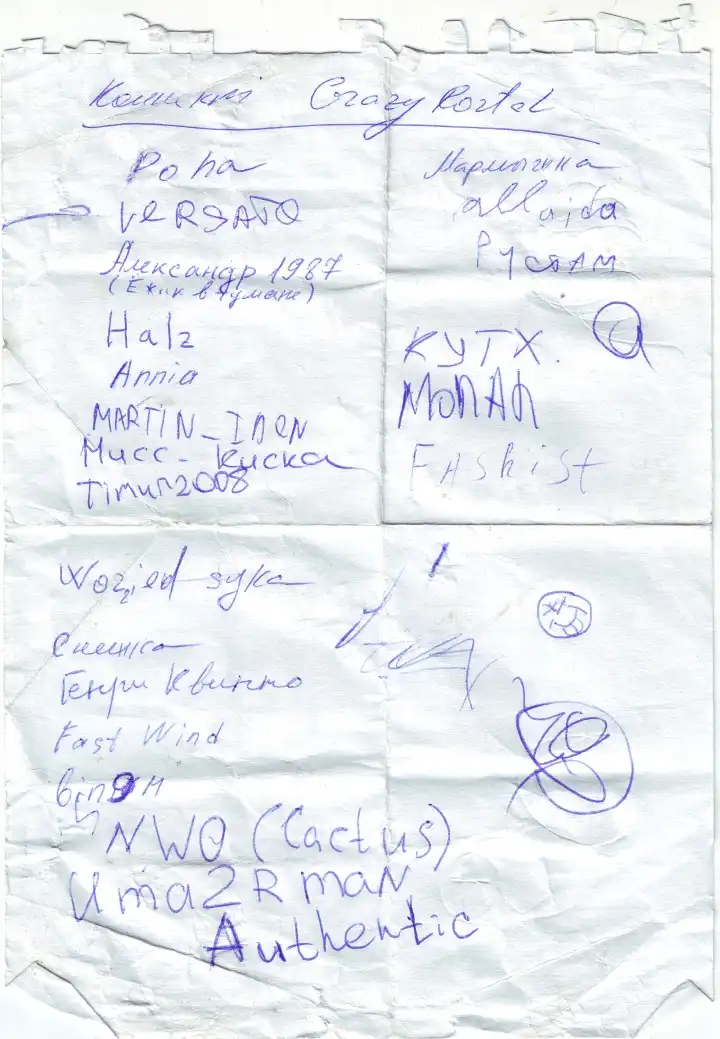 Crazy Portal
Poha
VERSATO
Александр 1987
(Ёжик в тумане)
Halz
Annia
MARTIN_IDEN
Мисс - Киска
Timur2008
Мармышка
allaida
Рустам
КУТХ.
МОПАП
FAshist
Снежка
Генри Квинто
Fast Wind
NWO (Cactus)
Uma2Rman
Authentic